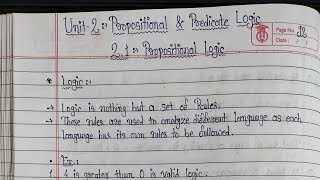 Unit-2:- Propositional & Predicate Logic
Page No. 28
Date
2.1:- Propositional Logic
* Logic:-
→ Logic is nothing but a set of Rules.
→ These rules are used to analyze different language as each
language has its own rules to be followed.
* Ex:-
1. 4 is greater than 0 is valid logic.